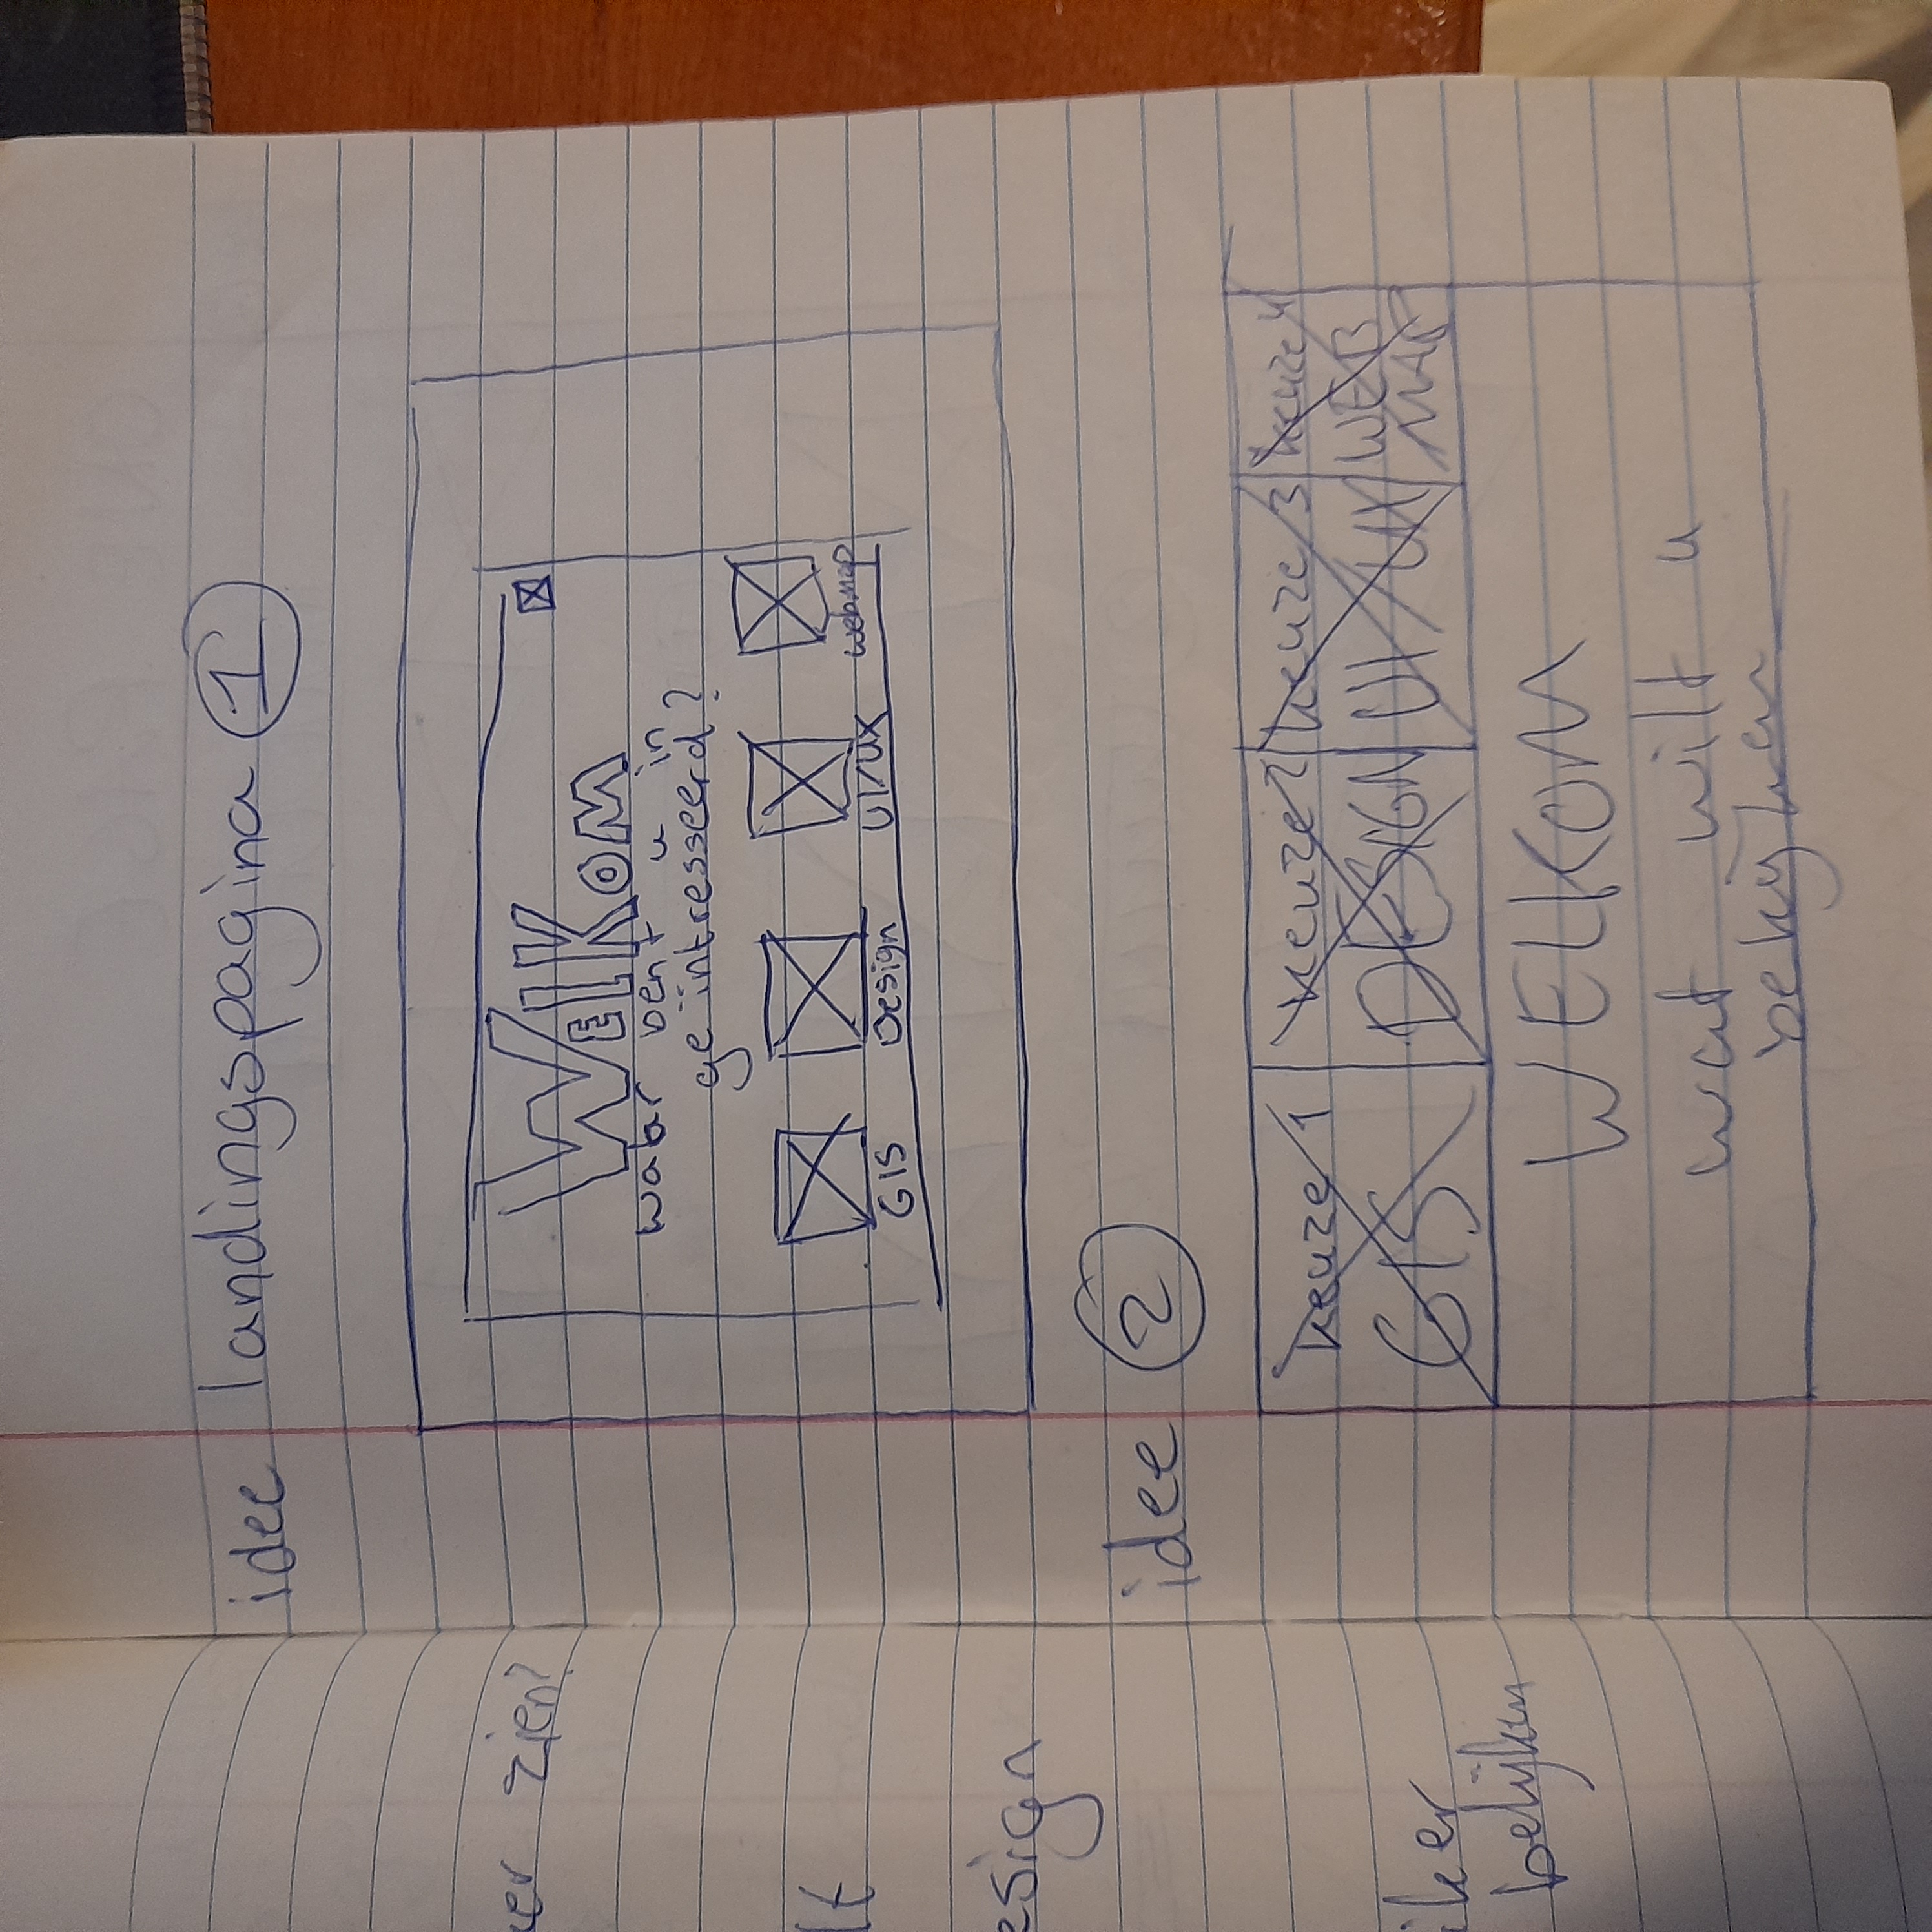 zien?
esign
belijken
idee landingspagina 1
WElKOM
waar bent u in
geïntresseerd?
GIS Design UI/UX webmap
idee 2
keuze 1 keuze 2 keuze 3 keuze 4
GIS DESIGN UI/UX WEB
MAP
WELKOM
wat wilt u
bekijken